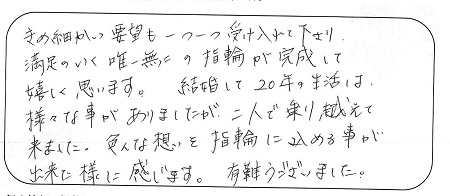 きめ細かい要望も一つ一つ受け入れて下さり
満足のいく唯一無二の指輪が完成して
嬉しく思います。 結婚して20年の生活は、
様々な事がありましたが、二人で乗り越えて
来ました。色んな想いを指輪に込める事が
出来た様に感じます。 有難うございました。